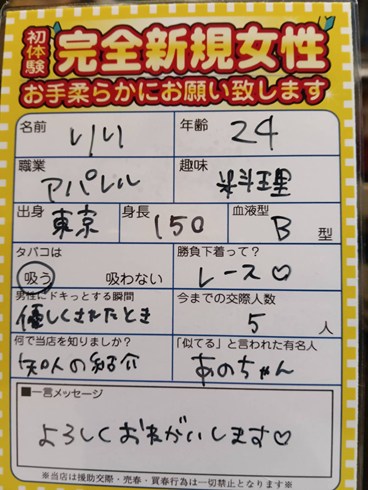 初体験
完全新規女性
お手柔らかにお願い致します
名前 りり 年齢 24
職業 アパレル 趣味 料理
出身 東京 身長 150 血液型 B 型
タバコは 吸う 吸わない 勝負下着って? レース♡
男性にドキっとする瞬間 優しくされたとき 今までの交際人数 5 人
何で当店を知りましたか? 知人の紹介 「似てる」と言われた有名人 あのちゃん
■一言メッセージ
よろしくおねがいします♡
※当店は援助交際・売春・買春行為は一切禁止となります※